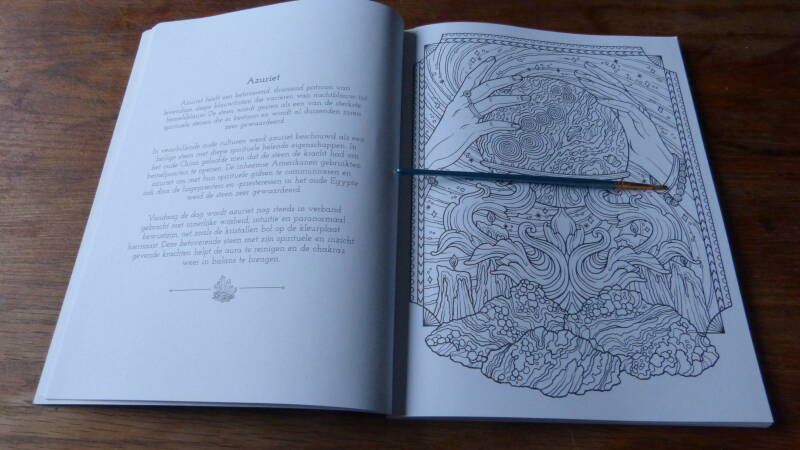 Azuriet
Azuriet heeft een betoverend, dansend patroon van
levendige, diepe blauwtinten die variëren van nachtblauw tot
hemelsblauw. De steen wordt gezien als een van de sterkste
spirituele stenen die er bestaan en wordt al duizenden jaren
zeer gewaardeerd.
In verschillende oude culturen werd azuriet beschouwd als een
heilige steen met diepe spirituele helende eigenschappen. In
het oude China geloofde men dat de steen de kracht had om
hemelpoorten te openen. De inheemse Amerikanen gebruikten
azuriet om met hun spirituele gidsen te communiceren en
ook door de hogepriesters en -priesteressen in het oude Egypte
werd de steen zeer gewaardeerd.
Vandaag de dag wordt azuriet nog steeds in verband
gebracht met innerlijke wijsheid, intuïtie en paranormaal
bewustzijn, net zoals de kristallen bol op de kleurplaat
hiernaast. Deze betoverende steen met zijn spirituele en inzicht
gevende krachten helpt de aura te reinigen en de chakra's
weer in balans te brengen.